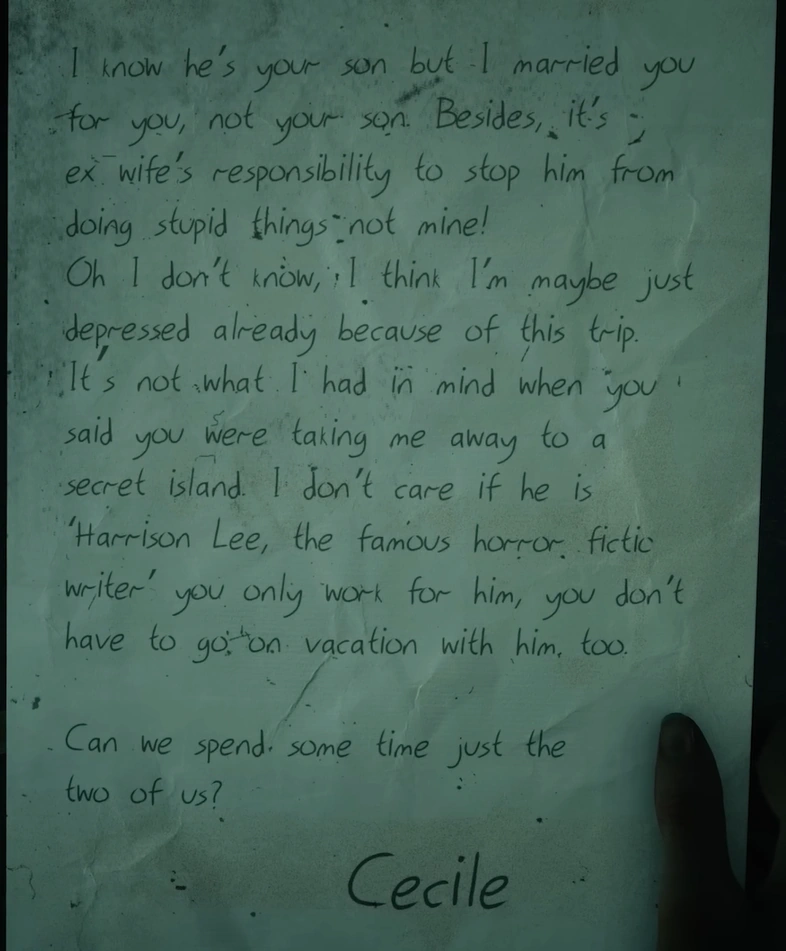 I know he's your son but I married you
for you, not your son. Besides, it's
ex wife's responsibility to stop him from
doing stupid things not mine!
Oh I don't know, I think I'm maybe just
depressed already because of this trip.
It's not what I had in mind when you
said you were taking me away to a
secret island. I don't care if he is
'Harrison Lee, the famous horror fictio
writer' you only work for him, you don't
have to go on vacation with him, too.
Can we spend some time just the
two of us?
Cecile